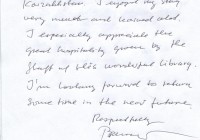 Kazakhstan. I enjoyed my stay
very much and learned a lot.
I especially appreciate the
great hospitality given by the
staff of this wonderful library.
I'm looking forward to return
some time in the near future.
Respectfully